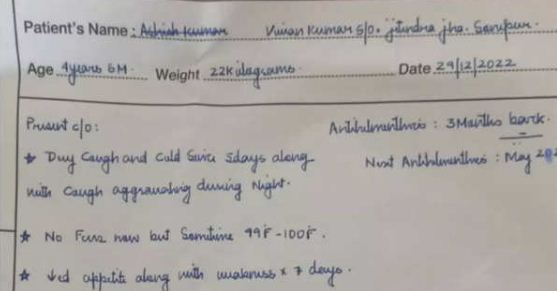 Patient's Name : Ashish Kumar Vivian Kumar S/o. jitendra jha. Sarupur.
Age 4years 6M. Weight 22Kilagrams Date 29/12/2022
Present c/o: Antihelmenthres : 3Months back.
Dry Caugh and Culd Since 5days along Next Antihelmenthres : May
with Caugh aggravating during Night.
No Fever now but Sometime 99F-100F.
↓ed appetite along with weakness x 7 days.